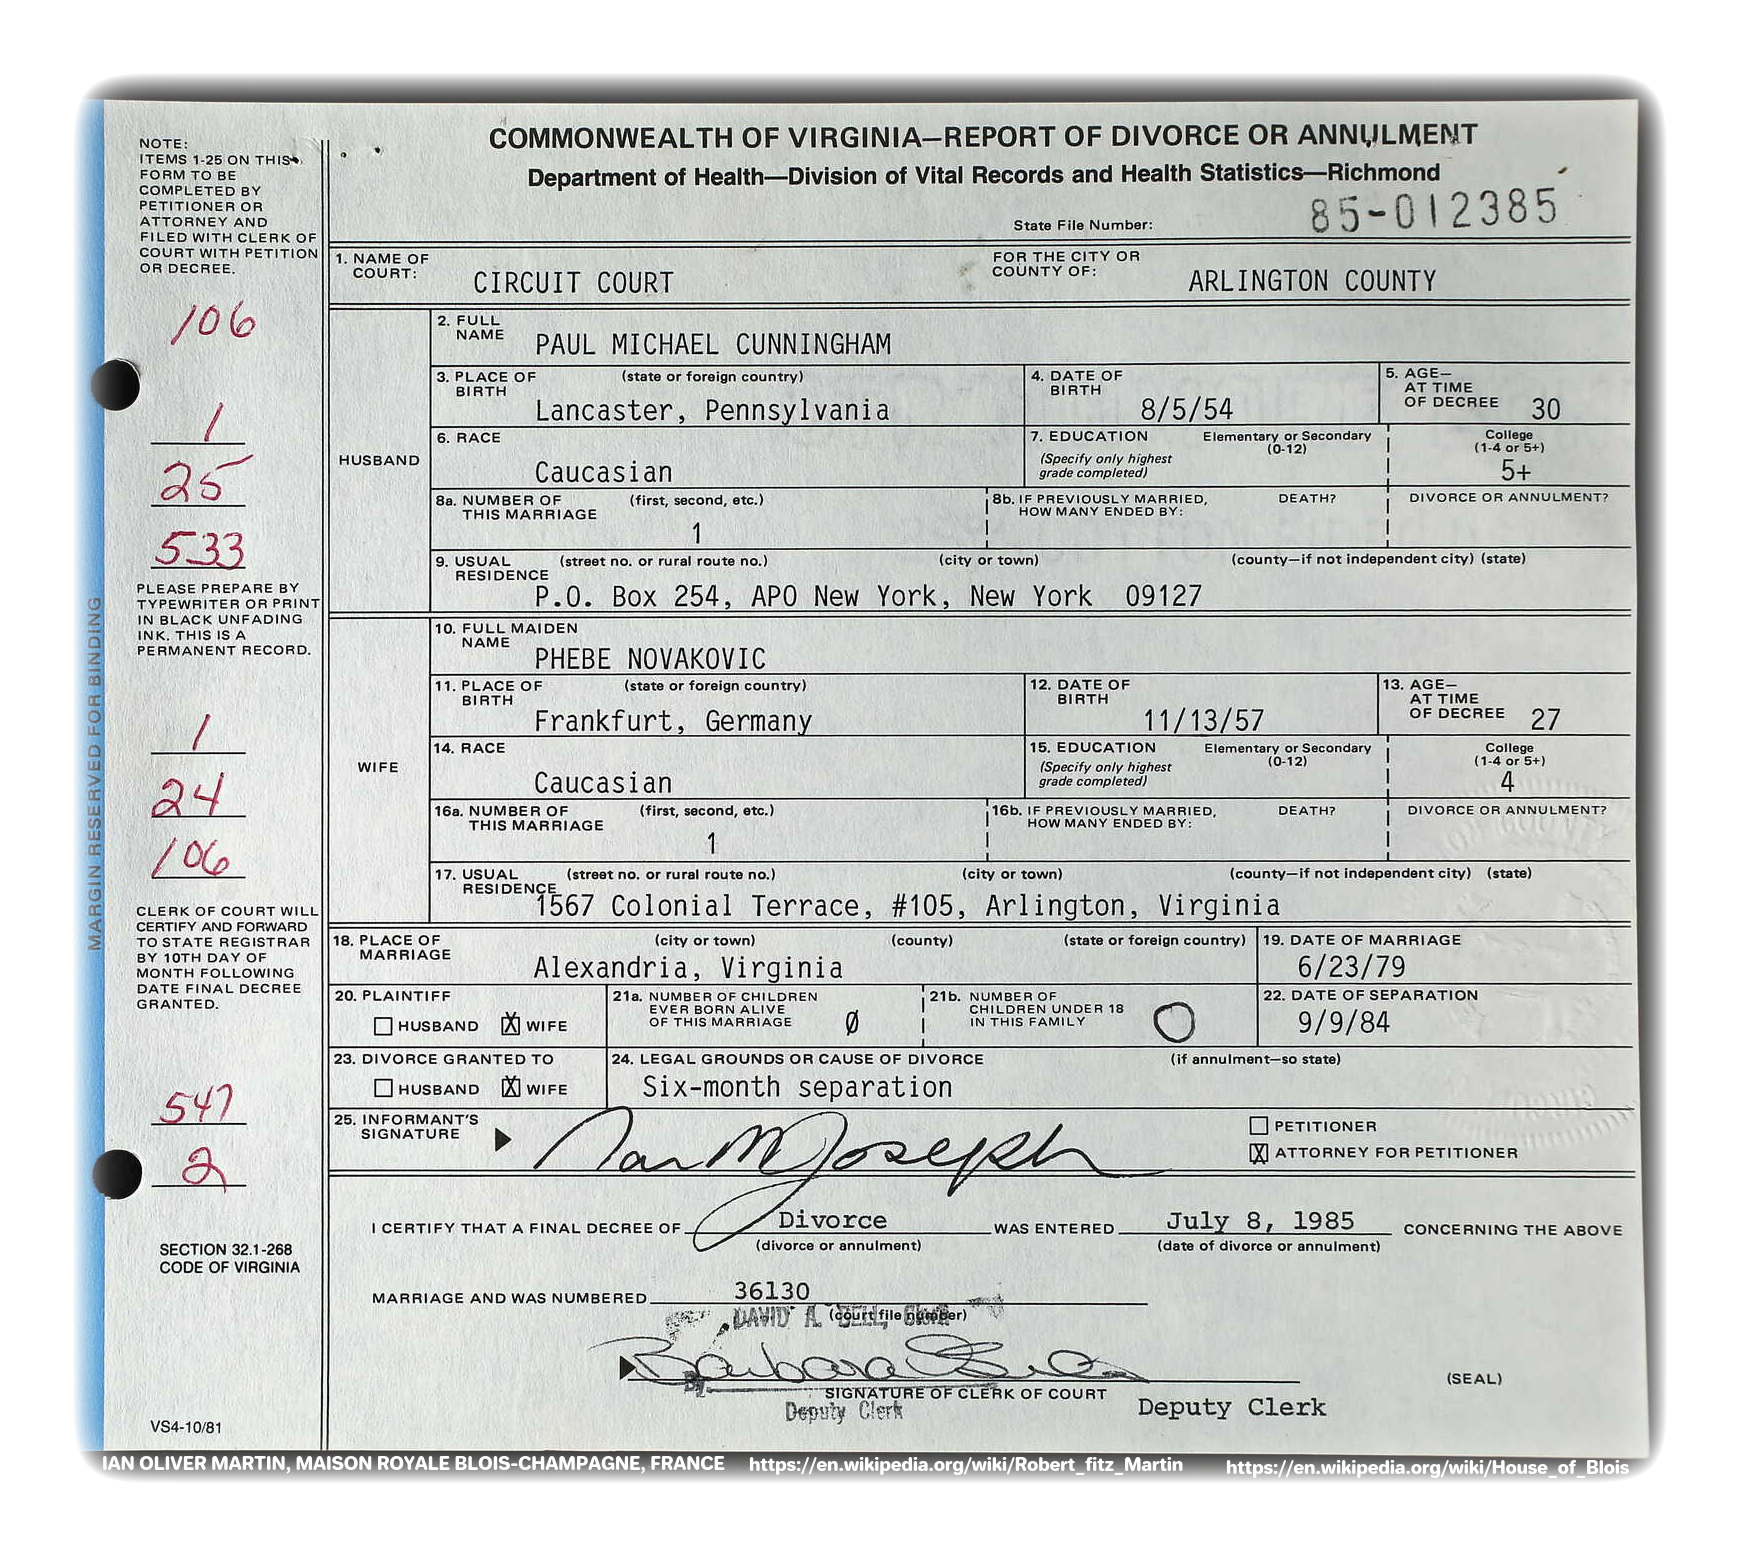 COMMONWEALTH OF VIRGINIA—REPORT OF DIVORCE OR ANNULMENT
Department of Health—Division of Vital Records and Health Statistics—Richmond
State File Number: 85-012385
NOTE:
ITEMS 1-25 ON THIS
FORM TO BE
COMPLETED BY
PETITIONER OR
ATTORNEY AND
FILED WITH CLERK OF
COURT WITH PETITION
OR DECREE.
106
1
25
533
PLEASE PREPARE BY
TYPEWRITER OR PRINT
IN BLACK UNFADING
INK. THIS IS A
PERMANENT RECORD.
1
24
106
CLERK OF COURT WILL
CERTIFY AND FORWARD
TO STATE REGISTRAR
BY 10TH DAY OF
MONTH FOLLOWING
DATE FINAL DECREE
GRANTED.
547
2
SECTION 32.1-268
CODE OF VIRGINIA
VS4-10/81
MARGIN RESERVED FOR BINDING
1. NAME OF
COURT: CIRCUIT COURT
FOR THE CITY OR
COUNTY OF: ARLINGTON COUNTY
HUSBAND
2. FULL
NAME PAUL MICHAEL CUNNINGHAM
3. PLACE OF (state or foreign country)
BIRTH Lancaster, Pennsylvania
4. DATE OF
BIRTH 8/5/54
5. AGE—
AT TIME
OF DECREE 30
6. RACE
Caucasian
7. EDUCATION Elementary or Secondary
(0-12)
(Specify only highest
grade completed)
College
(1-4 or 5+)
5+
8a. NUMBER OF (first, second, etc.)
THIS MARRIAGE
1
8b. IF PREVIOUSLY MARRIED, DEATH? DIVORCE OR ANNULMENT?
HOW MANY ENDED BY:
9. USUAL (street no. or rural route no.) (city or town) (county—if not independent city) (state)
RESIDENCE
P.O. Box 254, APO New York, New York 09127
WIFE
10. FULL MAIDEN
NAME PHEBE NOVAKOVIC
11. PLACE OF (state or foreign country)
BIRTH Frankfurt, Germany
12. DATE OF
BIRTH 11/13/57
13. AGE—
AT TIME
OF DECREE 27
14. RACE
Caucasian
15. EDUCATION Elementary or Secondary
(0-12)
(Specify only highest
grade completed)
College
(1-4 or 5+)
4
16a. NUMBER OF (first, second, etc.)
THIS MARRIAGE
1
16b. IF PREVIOUSLY MARRIED, DEATH? DIVORCE OR ANNULMENT?
HOW MANY ENDED BY:
17. USUAL (street no. or rural route no.) (city or town) (county—if not independent city) (state)
RESIDENCE
1567 Colonial Terrace, #105, Arlington, Virginia
18. PLACE OF (city or town) (county) (state or foreign country)
MARRIAGE Alexandria, Virginia
19. DATE OF MARRIAGE
6/23/79
20. PLAINTIFF
HUSBAND X WIFE
21a. NUMBER OF CHILDREN
EVER BORN ALIVE
OF THIS MARRIAGE Ø
21b. NUMBER OF
CHILDREN UNDER 18
IN THIS FAMILY O
22. DATE OF SEPARATION
9/9/84
23. DIVORCE GRANTED TO
HUSBAND X WIFE
24. LEGAL GROUNDS OR CAUSE OF DIVORCE (if annulment—so state)
Six-month separation
25. INFORMANT'S
SIGNATURE
Joseph
PETITIONER
X ATTORNEY FOR PETITIONER
I CERTIFY THAT A FINAL DECREE OF Divorce WAS ENTERED July 8, 1985 CONCERNING THE ABOVE
(divorce or annulment) (date of divorce or annulment)
MARRIAGE AND WAS NUMBERED 36130
(court file number)
DAVID A. BELL, Clerk
Barbara
By
SIGNATURE OF CLERK OF COURT
Deputy Clerk
Deputy Clerk
(SEAL)
IAN OLIVER MARTIN, MAISON ROYALE BLOIS-CHAMPAGNE, FRANCE https://en.wikipedia.org/wiki/Robert_fitz_Martin https://en.wikipedia.org/wiki/House_of_Blois